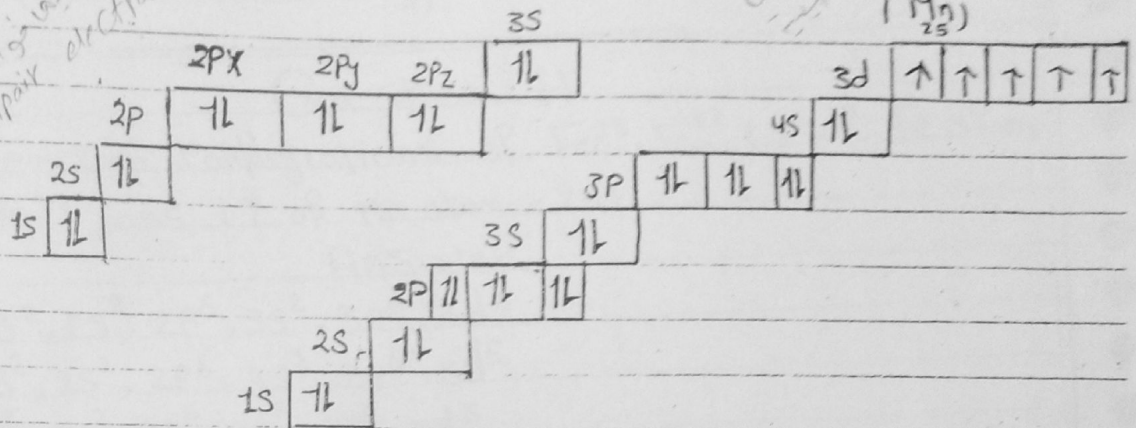 pair elect
3S
(Mn)
25
2Px 2Py 2Pz 1L
3d ↑ ↑ ↑ ↑ ↑
2P 1L 1L 1L
4S 1L
2S 1L
3P 1L 1L 1L
1S 1L
3S 1L
2P 1L 1L 1L
2S 1L
1S 1L